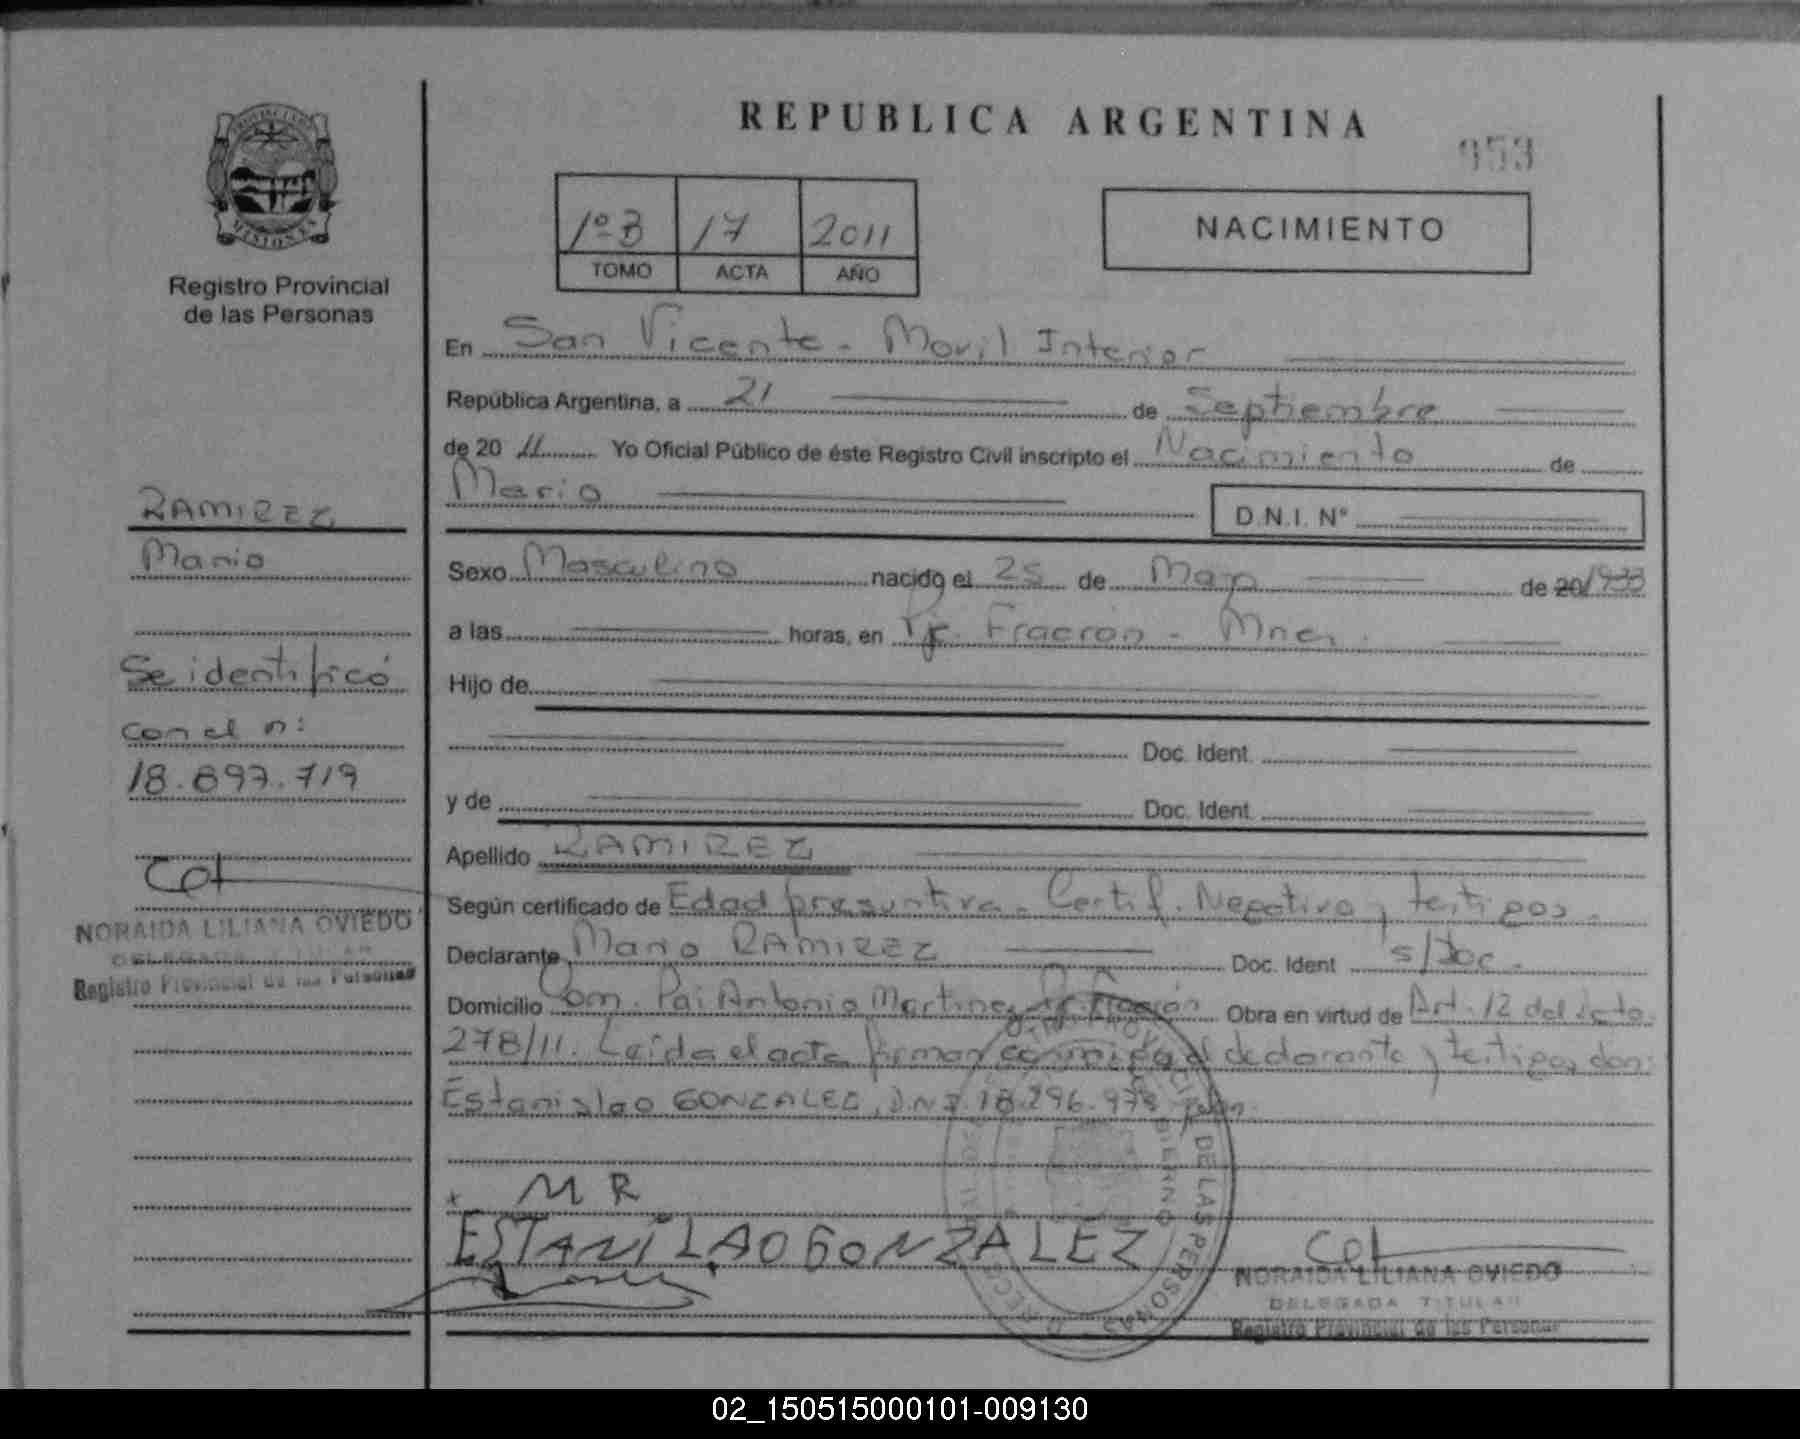 REPUBLICA ARGENTINA
953
PROVINCIA DE
MISIONES
Registro Provincial
de las Personas
1º B 17 2011
TOMO ACTA AÑO
NACIMIENTO
En San Vicente - Movil Interior
República Argentina, a 21 de Septiembre
de 20 11 Yo Oficial Público de éste Registro Civil inscripto el Nacimiento de
Mario
D.N.I. N°
Sexo Masculino nacido el 25 de Mayo de 20 1933
a las horas, en Pje. Fracrán - Mnes.
Hijo de
Doc. Ident.
y de Doc. Ident.
Apellido RAMIREZ
Según certificado de Edad presuntiva. Certif. Negativo y testigos.
Declarante Mario RAMIREZ Doc. Ident s/Doc.
Domicilio Com. Pai Antonio Martinez Fracrán Obra en virtud de Art. 12 del dcto.
278/11. Leída el acta firman conmigo el declarante y testigos don:
Estanislao GONZALEZ, D.N.I. 18.296.978
M R
ESTANILAO GONZALEZ
NORAIDA LILIANA OVIEDO
DELEGADA TITULAR
Registro Provincial de las Personas
RAMIREZ
Mario
Se identificó
con el n:
18.897.719
NORAIDA LILIANA OVIEDO
DELEGADA TITULAR
Registro Provincial de las Personas
DE LAS PERSONAS
02_150515000101-009130